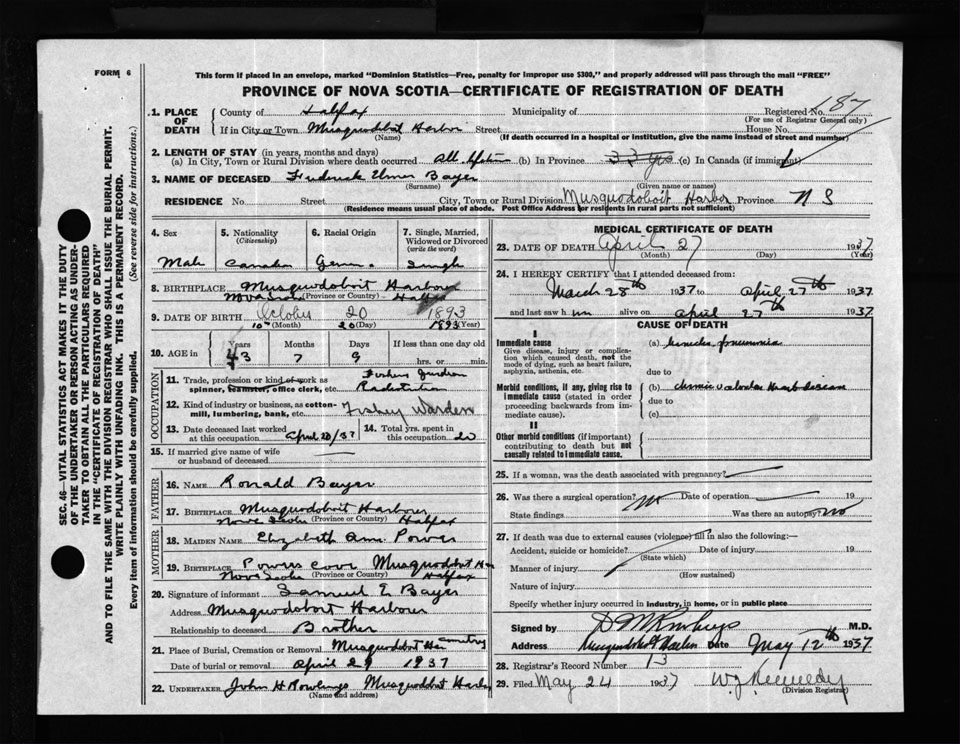 FORM 6
This form if placed in an envelope, marked "Dominion Statistics—Free, penalty for improper use $300," and properly addressed will pass through the mail "FREE"
PROVINCE OF NOVA SCOTIA—CERTIFICATE OF REGISTRATION OF DEATH
1. PLACE OF DEATH
County of Halifax Municipality of Registered No. 187
(For use of Registrar General only)
If in City or Town Musquodobit Harbor Street House No.
(Name) (If death occurred in a hospital or institution, give the name instead of street and number)
2. LENGTH OF STAY (in years, months and days)
(a) In City, Town or Rural Division where death occurred All lifetime (b) In Province 33 yrs (c) In Canada (if immigrant)
3. NAME OF DECEASED Frederick Elmer Bayer
(Surname) (Given name or names)
RESIDENCE No. Street City, Town or Rural Division Musquodoboit Harbor Province N S
(Residence means usual place of abode. Post Office Address for residents in rural parts not sufficient)
4. Sex 5. Nationality (Citizenship) 6. Racial Origin 7. Single, Married, Widowed or Divorced (write the word)
Male Canadian Single
8. BIRTHPLACE Musquodoboit Harbour
Nova Scotia (Province or Country) Halifax
9. DATE OF BIRTH October 20 1893
10th (Month) 20 (Day) 1893 (Year)
10. AGE in Years Months Days If less than one day old
43 7 9 hrs. or min.
OCCUPATION
11. Trade, profession or kind of work as spinner, teamster, office clerk, etc. Fishery Guardian
12. Kind of industry or business, as cotton-mill, lumbering, bank, etc. Fishey Warden
13. Date deceased last worked at this occupation April 20/37 14. Total yrs. spent in this occupation 20
15. If married give name of wife or husband of deceased
FATHER
16. NAME Ronald Bayer
17. BIRTHPLACE Musquodoboit Harbour
Nova Scotia (Province or Country) Halifax
MOTHER
18. MAIDEN NAME Elizabeth Ann Power
19. BIRTHPLACE Powers Cove Musquodobit Har
Nova Scotia (Province or Country) Halifax
20. Signature of informant Samuel E Bayer
Address Musquodoboit Harbour
Relationship to deceased Brother
21. Place of Burial, Cremation or Removal Musquodobit Har Cemetry
Date of burial or removal April 29 1937
22. UNDERTAKER John H Rowlings Musquodobit Harbor
(Name and address)
MEDICAL CERTIFICATE OF DEATH
23. DATE OF DEATH April 27 1937
(Month) (Day) (Year)
24. I HEREBY CERTIFY that I attended deceased from:
March 28th 1937 to April 27th 1937
and last saw him alive on April 27th 1937
CAUSE OF DEATH
I
Immediate cause
Give disease, injury or complication which caused death, not the mode of dying, such as heart failure, asphyxia, asthenia, etc.
(a) pneumonia
due to
Morbid conditions, if any, giving rise to immediate cause (stated in order proceeding backwards from immediate cause).
(b) chronic valvular heart disease
due to
(c)
II
Other morbid conditions (if important) contributing to death but not causally related to immediate cause.
25. If a woman, was the death associated with pregnancy?
26. Was there a surgical operation? No Date of operation 19
State findings Was there an autopsy? No
27. If death was due to external causes (violence) fill in also the following:—
Accident, suicide or homicide? Date of injury 19
(State which)
Manner of injury
(How sustained)
Nature of injury
Specify whether injury occurred in industry, in home, or in public place
Signed by M.D.
Address Musquodoboit Harbor Date May 12th 1937
28. Registrar's Record Number 13
29. Filed May 24 1937 W J Kennedy
(Division Registrar)
SEC. 46—VITAL STATISTICS ACT MAKES IT THE DUTY OF THE UNDERTAKER OR PERSON ACTING AS UNDERTAKER TO OBTAIN ALL THE PARTICULARS REQUIRED IN THE "CERTIFICATE OF REGISTRATION OF DEATH" AND TO FILE THE SAME WITH THE DIVISION REGISTRAR WHO SHALL ISSUE THE BURIAL PERMIT.
WRITE PLAINLY WITH UNFADING INK. THIS IS A PERMANENT RECORD.
Every item of information should be carefully supplied. (See reverse side for instructions.)